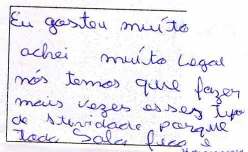 Eu gosteu muito
achei muito legal
nós temos que fazer
mais vezes esses tipo
de stividade porque
toda Sala fica é